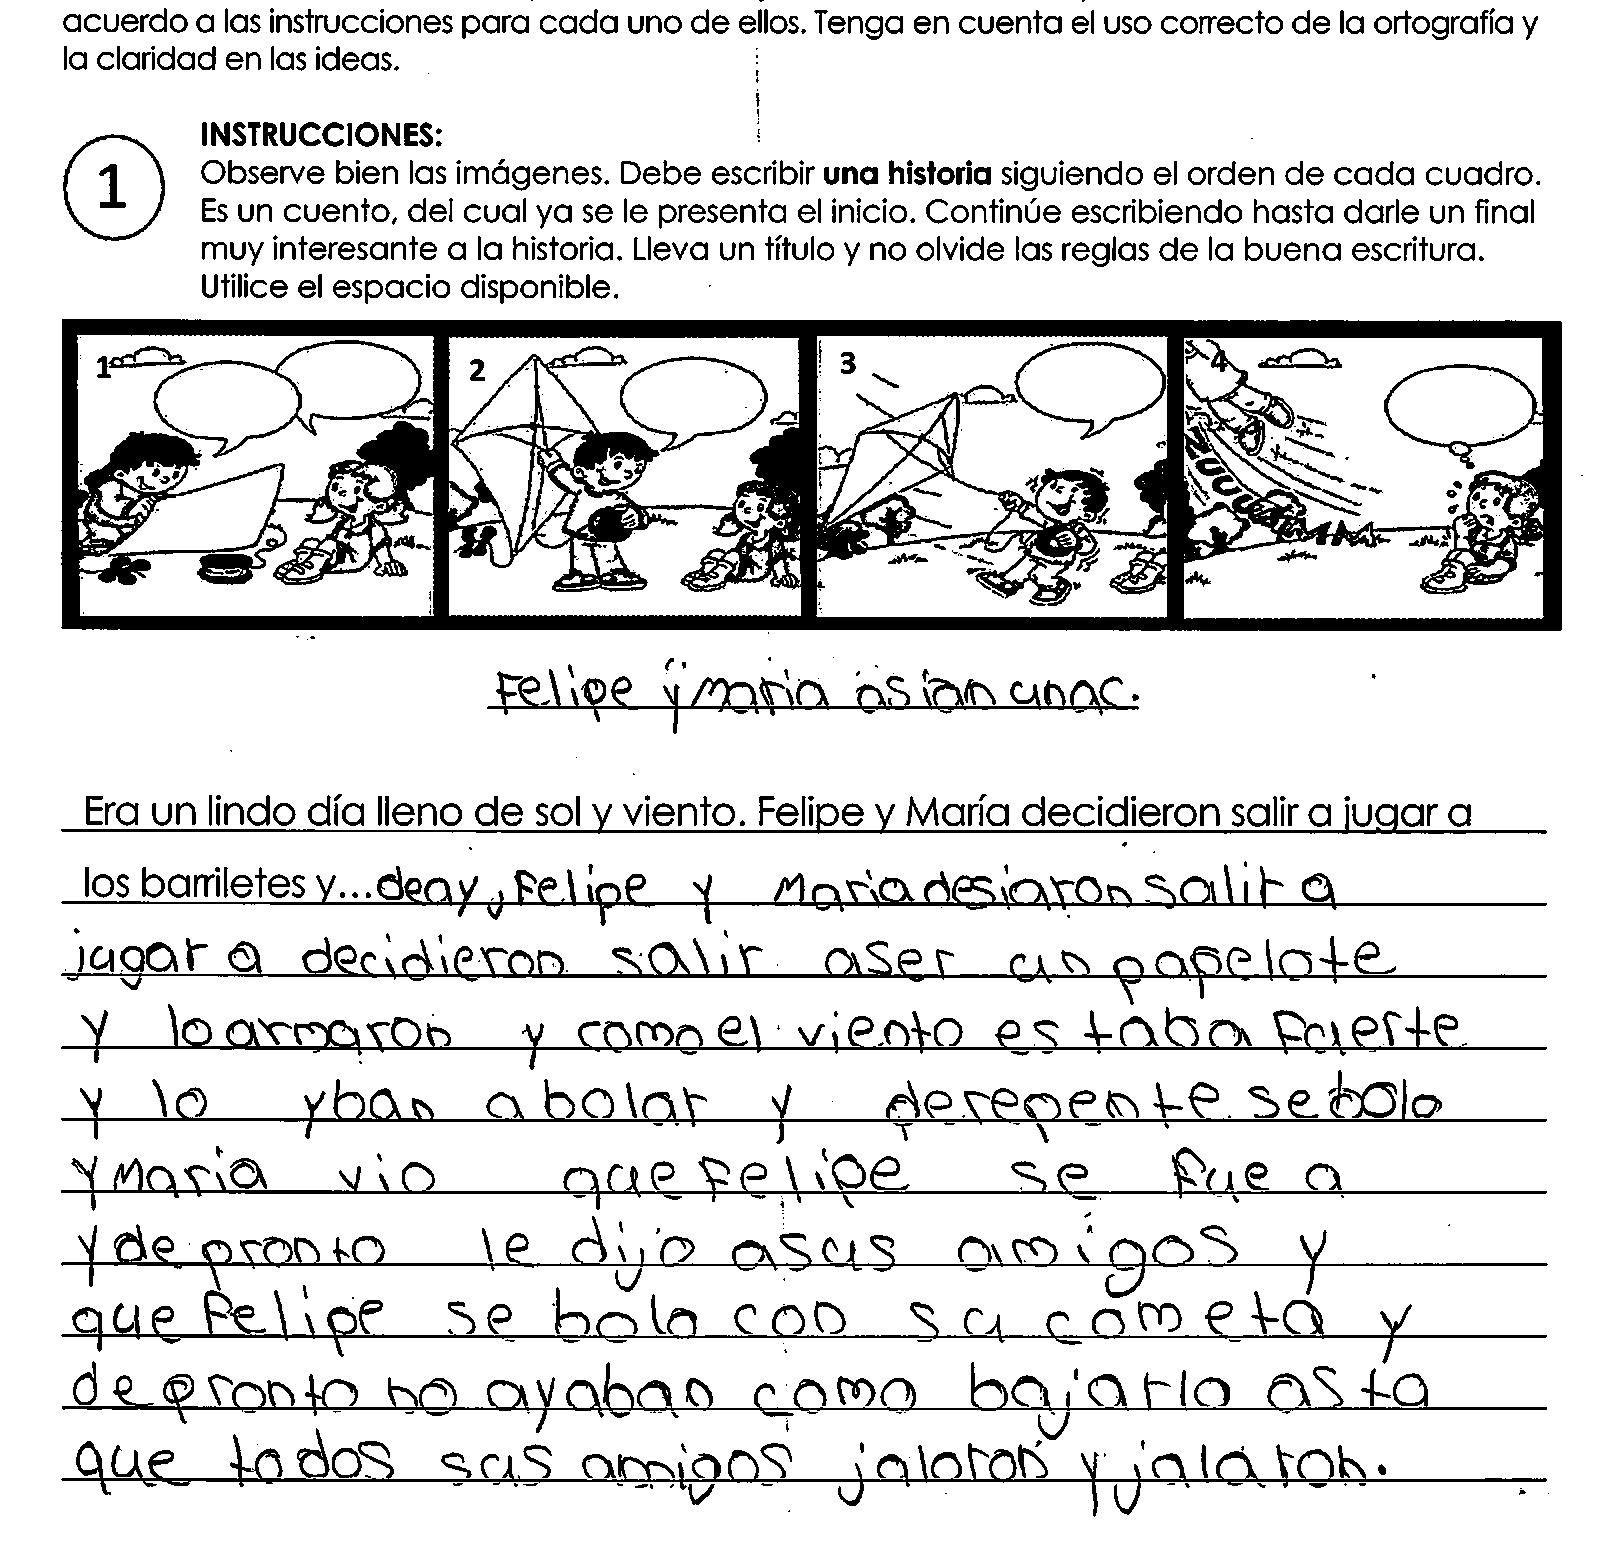 acuerdo a las instrucciones para cada uno de ellos. Tenga en cuenta el uso correcto de la ortografía y
la claridad en las ideas.
1
INSTRUCCIONES:
Observe bien las imágenes. Debe escribir una historia siguiendo el orden de cada cuadro.
Es un cuento, del cual ya se le presenta el inicio. Continúe escribiendo hasta darle un final
muy interesante a la historia. Lleva un título y no olvide las reglas de la buena escritura.
Utilice el espacio disponible.
1 2 3 4
ZUUU
Felipe y maria asian unac.
Era un lindo día lleno de sol y viento. Felipe y María decidieron salir a jugar a
los barriletes y... deay, Felipe y Maria desiaron salir a
jugar a decidieron salir aser un papelote
y lo armaron y como el viento es taba Fuerte
y lo yban a bolar y derepente se bolo
y Maria vio que Felipe se fue a
y de pronto le dijo a sus amigos y
que Felipe se bolo con su cometa y
de pronto no ayaban como bajarlo asta
que todos sus amigos jaloron y jalaron.